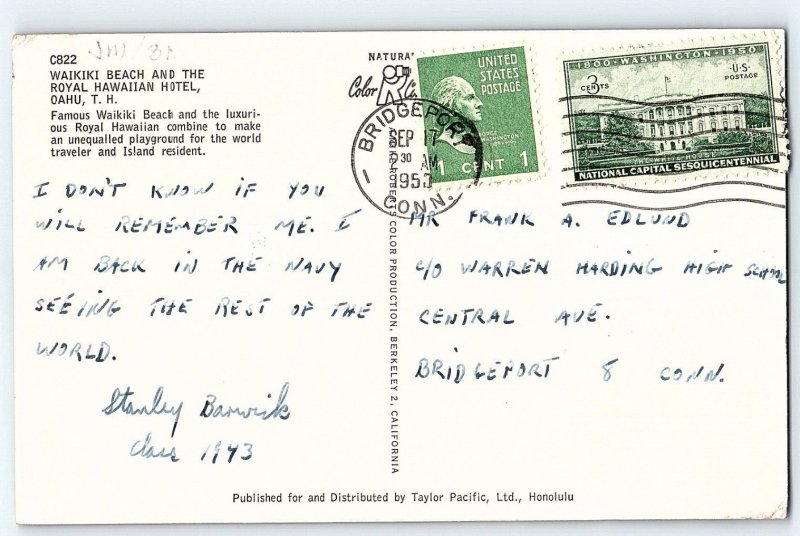 C822
WAIKIKI BEACH AND THE
ROYAL HAWAIIAN HOTEL,
OAHU, T. H.
Famous Waikiki Beach and the luxuri-
ous Royal Hawaiian combine to make
an unequalled playground for the world
traveler and Island resident.
I DON'T KNOW IF YOU
WILL REMEMBER ME. I
AM BACK IN THE NAVY
SEEING THE REST OF THE
WORLD.
Stanley Barwick
Class 1943
NATURA
Color
BRIDGEPORT
SEP 17
30 AM
195
CONN.
UNITED
STATES
POSTAGE
GEORGE
WASHINGTON
1 CENT 1
1800 - WASHINGTON - 1950
3
CENTS
U.S.
POSTAGE
THE WHITE HOUSE
NATIONAL CAPITAL SESQUICENTENNIAL
COLOR PRODUCTION, BERKELEY 2, CALIFORNIA
MR FRANK A. EDLUND
C/O WARREN HARDING HIGH SCHOOL
CENTRAL AVE.
BRIDGEPORT 8 CONN.
Published for and Distributed by Taylor Pacific, Ltd., Honolulu